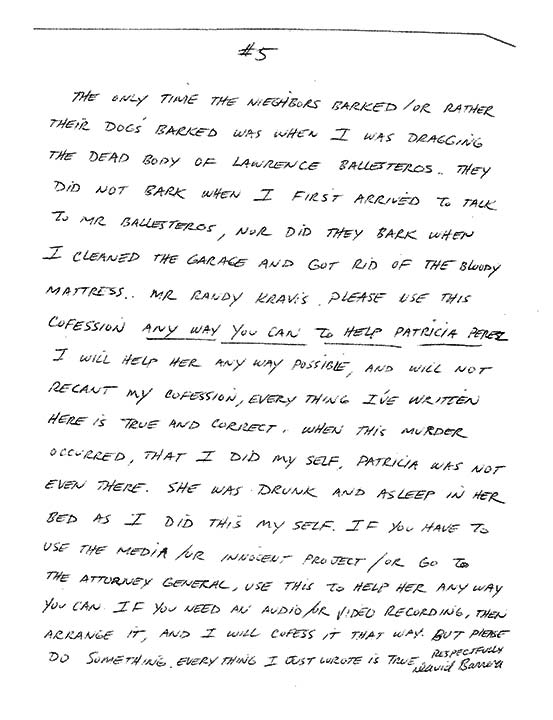 #5
THE ONLY TIME THE NIEGHBORS BARKED /OR RATHER
THEIR DOGS BARKED WAS WHEN I WAS DRAGGING
THE DEAD BODY OF LAWRENCE BALLESTEROS.. THEY
DID NOT BARK WHEN I FIRST ARRIVED TO TALK
TO MR BALLESTEROS, NOR DID THEY BARK WHEN
I CLEANED THE GARAGE AND GOT RID OF THE BLOODY
MATTRESS.. MR RANDY KRAVIS. PLEASE USE THIS
COFESSION ANY WAY YOU CAN TO HELP PATRICIA PEREZ
I WILL HELP HER ANY WAY POSSIBLE, AND WILL NOT
RECANT MY COFESSION, EVERY THING I'VE WRITTEN
HERE IS TRUE AND CORRECT. WHEN THIS MURDER
OCCURRED, THAT I DID MY SELF, PATRICIA WAS NOT
EVEN THERE. SHE WAS DRUNK AND ASLEEP IN HER
BED AS I DID THIS MY SELF. IF YOU HAVE TO
USE THE MEDIA /OR INNOCENT PROJECT /OR GO TO
THE ATTORNEY GENERAL, USE THIS TO HELP HER ANY WAY
YOU CAN. IF YOU NEED AN AUDIO/OR VIDEO RECORDING, THEN
ARRANGE IT, AND I WILL COFESS IT THAT WAY. BUT PLEASE
DO SOMETHING. EVERY THING I JUST WROTE IS TRUE
RESPECTFULLY
David